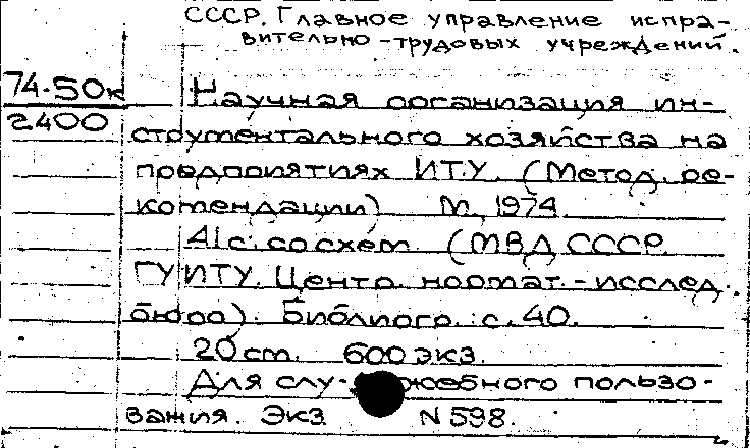 СССР. Главное управление испра-
вительно-трудовых учреждений.
74-50к
2400
Научная организация ин-
струментального хозяйства на
предприятиях ИТУ. (Метод. ре-
комендации) М., 1974.
41с. со схем. (МВД СССР.
ГУИТУ. Центр. нормат.-исслед.
бюро). Библиогр.: с. 40.
20 см. 600 экз.
Для слу-жебного пользо-
вания. Экз. N 598.